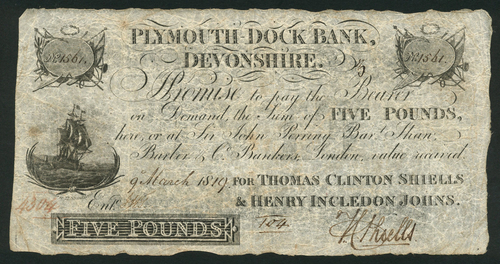 PLYMOUTH DOCK BANK,
No. 1561. No. 1561.
DEVONSHIRE.
I Promise to pay the Bearer
on Demand, the Sum of FIVE POUNDS,
here, or at Sir John Perring Bart. Shaw,
Barber & Co. Bankers, London, value received
9 March 1819 FOR THOMAS CLINTON SHIELLS
& HENRY INCLEDON JOHNS.
Entd.
104
FIVE POUNDS